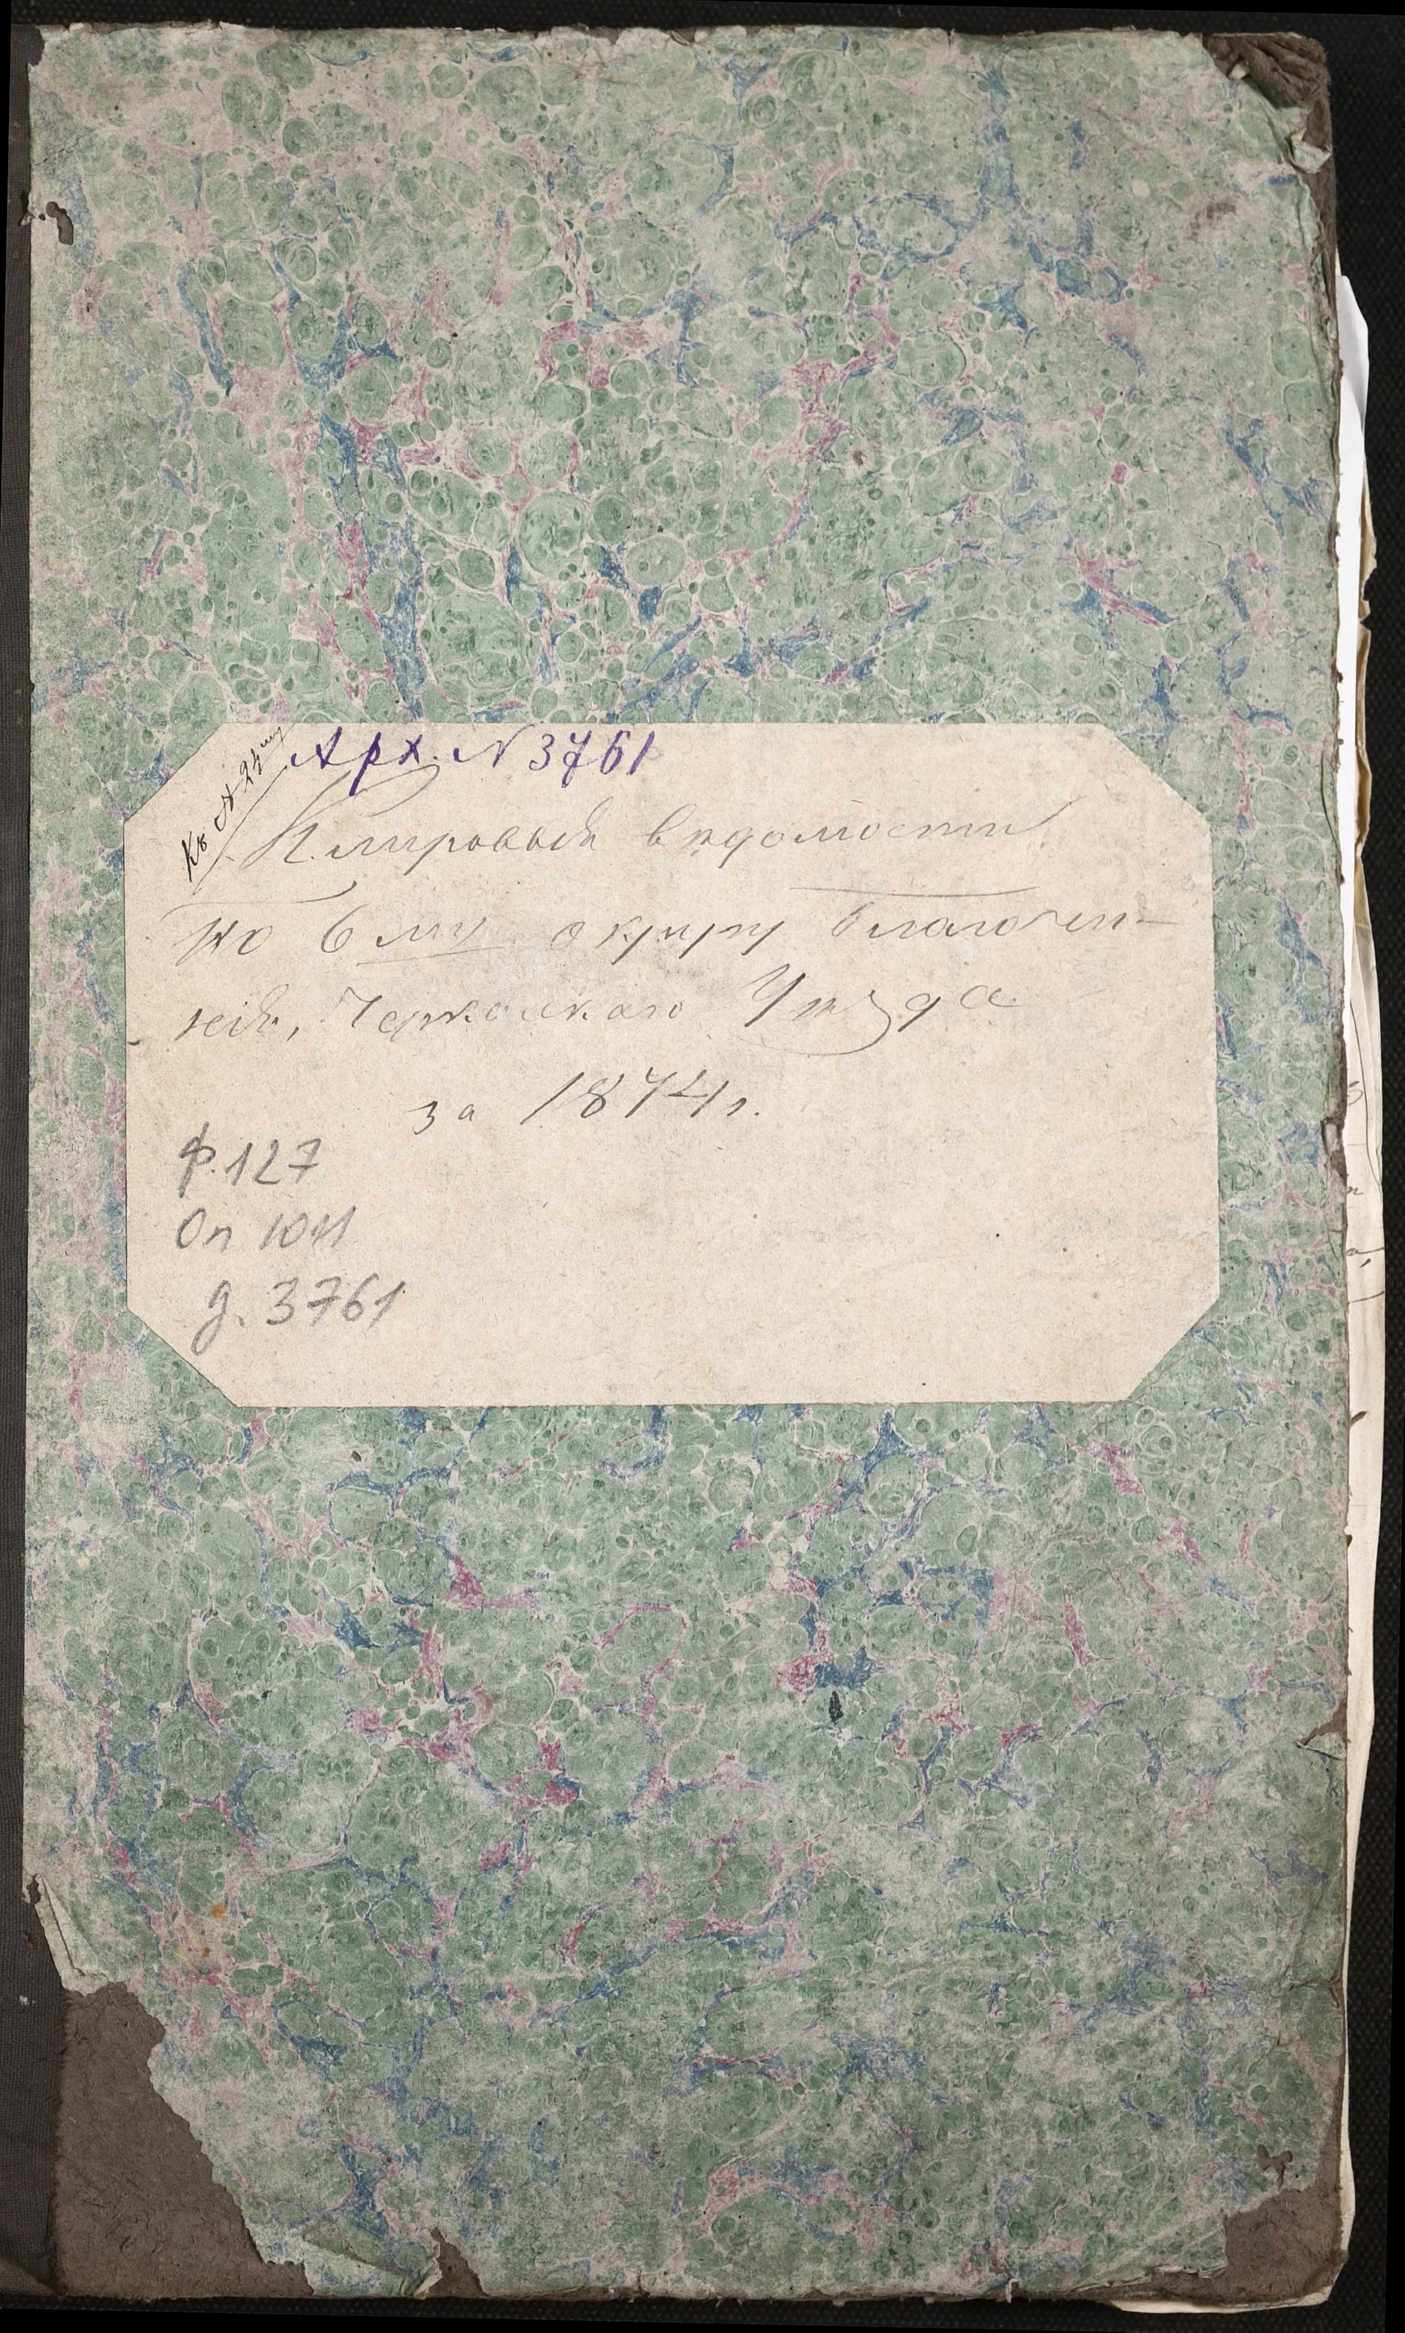 Къ № 24му
Арх. № 3761
Клировыя вѣдомости
по 6му округу благочи-
нія, Черкаскаго Уѣзда
за 1874 г.
ф. 127
Оп 1011
д. 3761